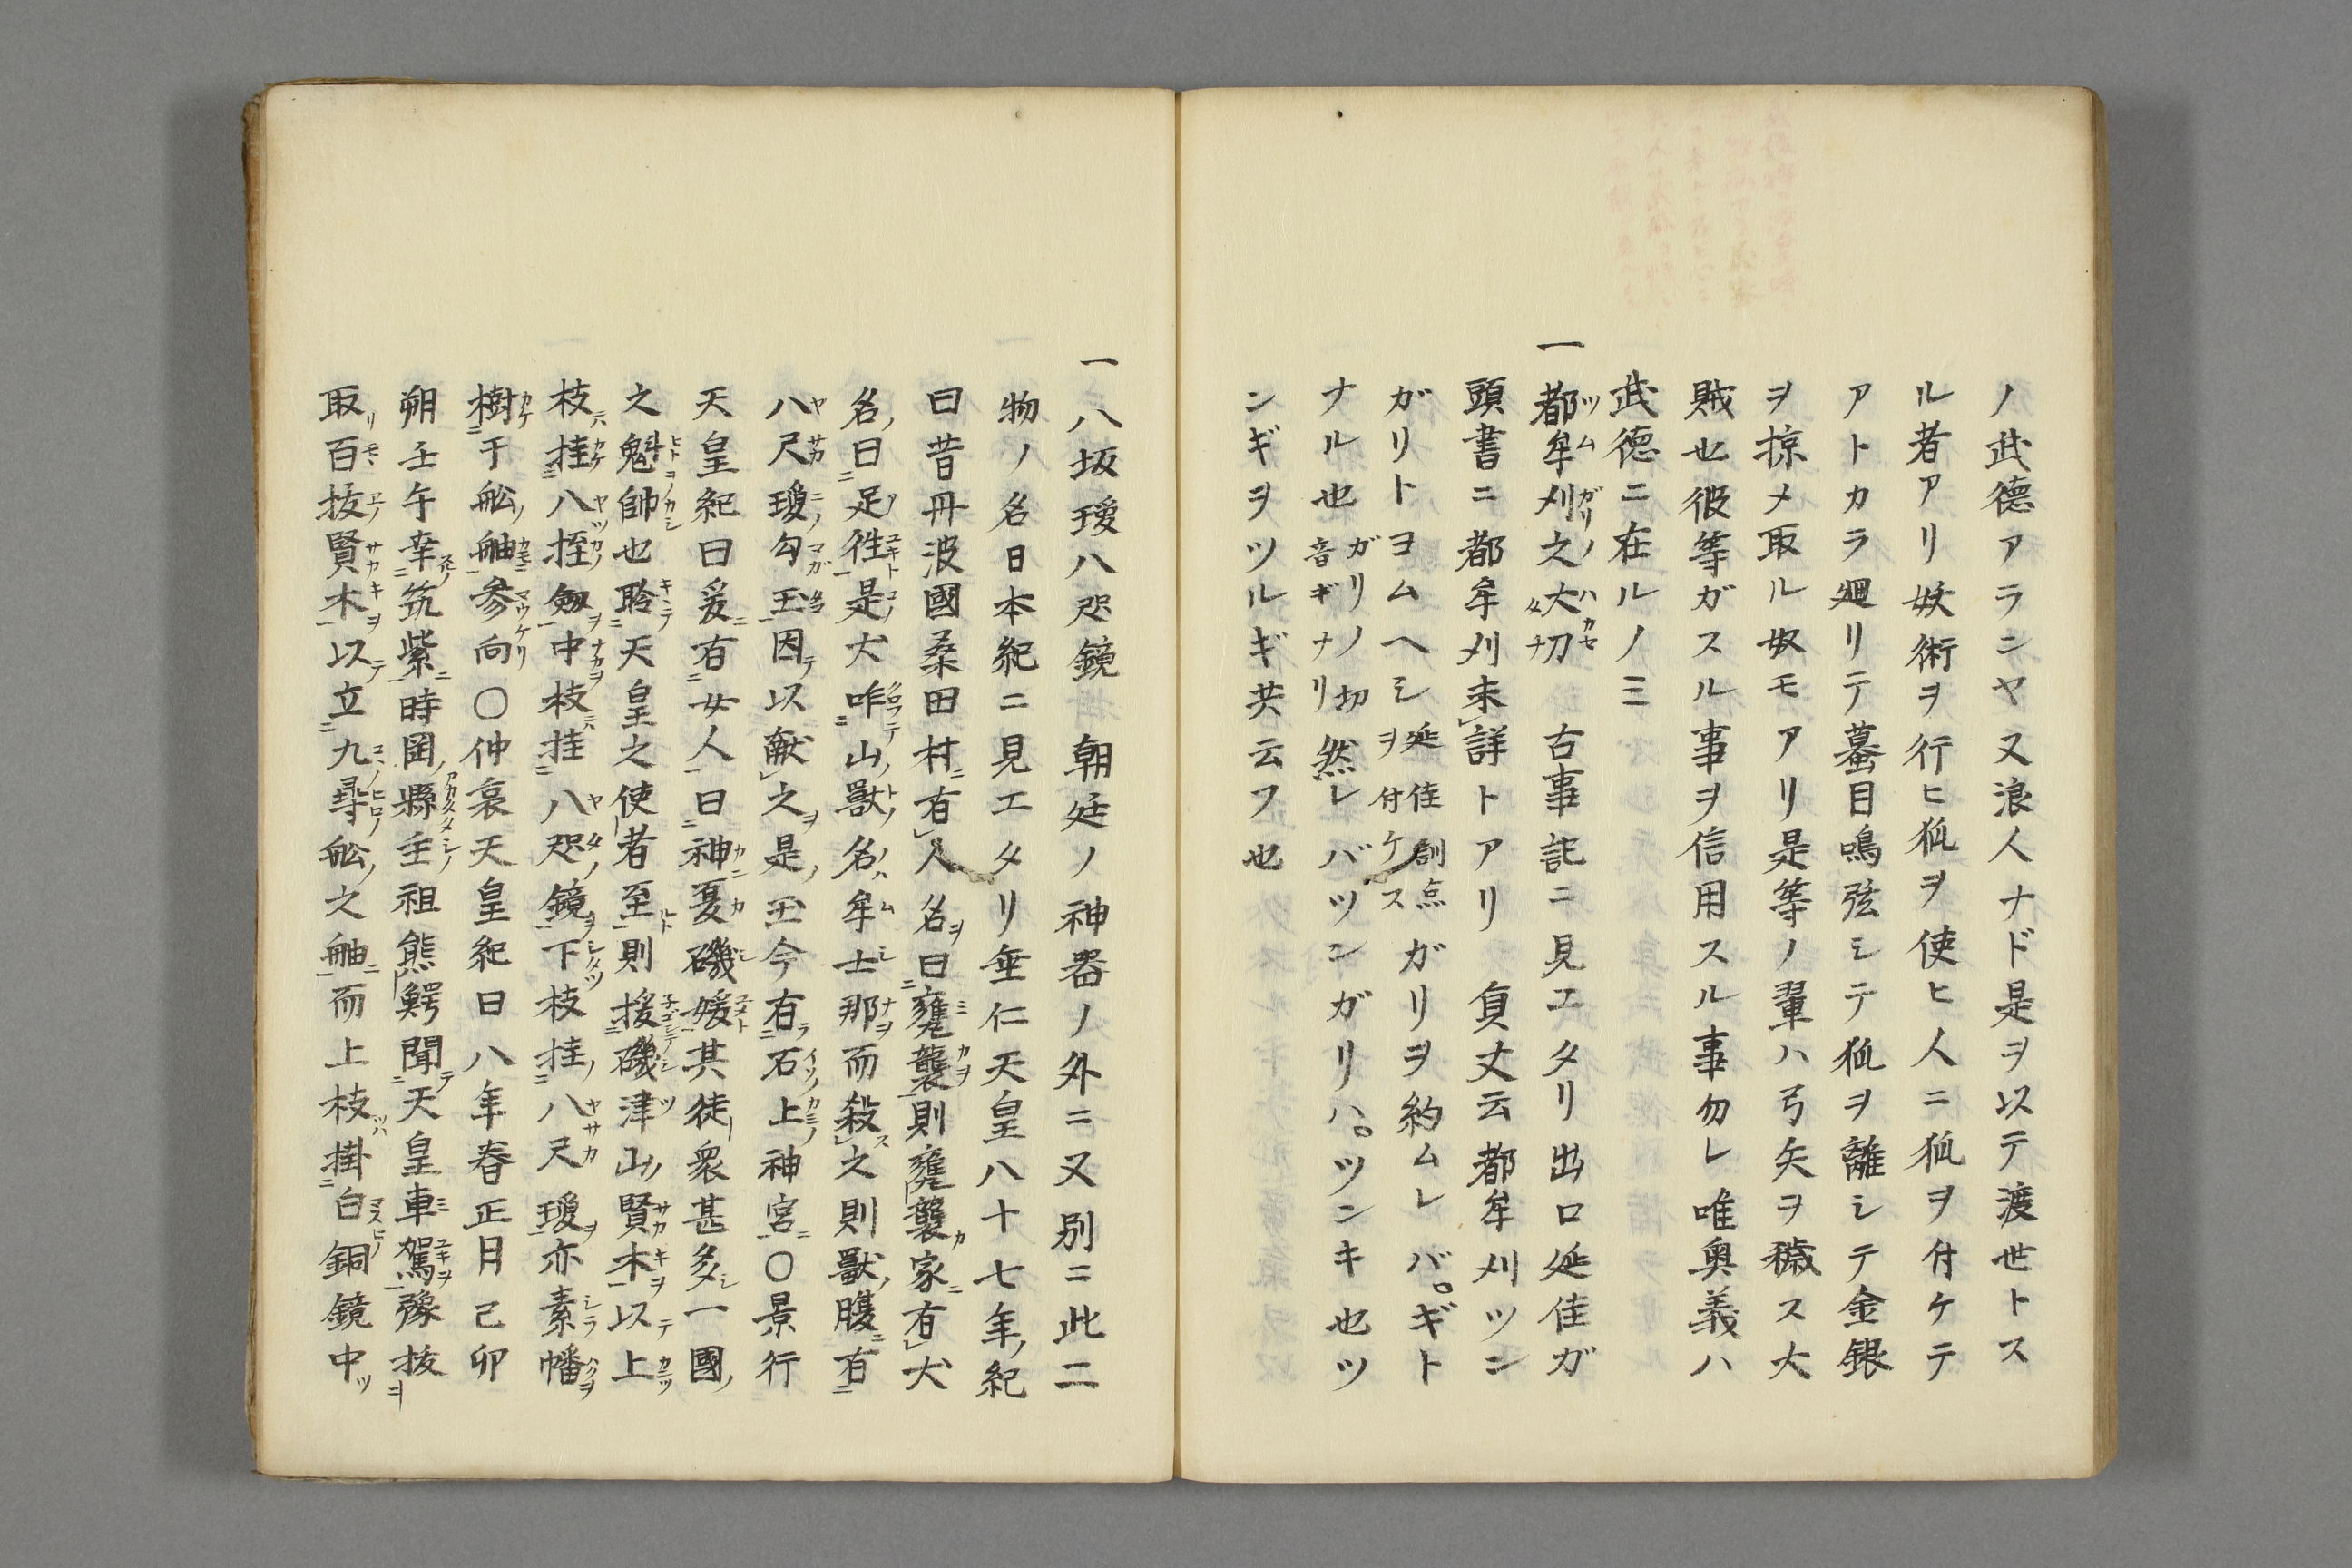 ノ武徳アランヤ又浪人ナド是ヲ以テ渡世トス
ル者アリ妖術ヲ行ヒ狐ヲ使ヒ人ニ狐ヲ付ケテ
アトカラ廻リテ蟇目鳴弦シテ狐ヲ離シテ金銀
ヲ掠メ取ル奴モアリ是等ノ輩ハ弓矢ヲ穢ス大
賊也彼等ガスル事ヲ信用スル事勿レ唯奥義ハ
武徳ニ在ルノミ
一都牟刈之大刀 古事記ニ見エタリ出口延佳ガ
頭書ニ都牟刈未詳トアリ 貞丈云都牟刈ツン
ガリトヨムヘシ延佳訓点ヲ付ケスガリヲ約ムレバギト
ナル也ガリノ切音ギナリ然レバツンガリハツンキ也ツ
ンギヲツルギ共云フ也
一八坂瓊八咫鏡 朝廷ノ神器ノ外ニ又別ニ此二
物ノ名日本紀ニ見エタリ垂仁天皇八十七年ノ紀
曰昔丹波國桑田村有人名曰甕襲則甕襲家有犬
名曰足往是犬咋山獣名牟士那而殺之則獣腹有
八尺瓊勾玉因以献之是玉今有石上神宮○景行
天皇紀曰爰有女人曰神夏磯媛其徒衆甚多一國
之魁帥也聆天皇之使者至則援磯津山賢木以上
枝挂八握劔中枝挂八咫鏡下枝挂八尺瓊亦素幡
樹于舩舳参向○仲哀天皇紀曰八年春正月己卯
朔壬午幸筑紫時岡縣主祖熊鰐聞天皇車駕豫抜
取百抜賢木以立九尋舩之舳而上枝掛白銅鏡中